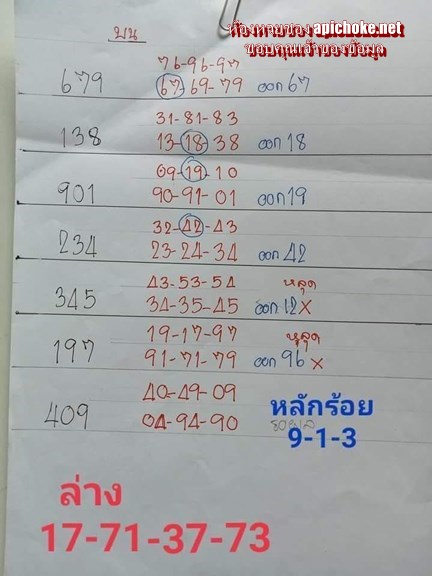 ห้องหวยของ apichoke.net
ขอบคุณเจ้าของข้อมูล
บน
76-96-97
679 67 69-79 ออก 67
31-81-83
138 13-18-38 ออก 18
09-19-10
901 90-91-01 ออก 19
32-42-43
234 23-24-34 ออก 42
43-53-54 หลุด
345 34-35-45 ออก 12 X
19-17-97 หลุด
197 91-71-79 ออก 96 X
40-49-09
409 04-94-90
หลักร้อย
9-1-3
ล่าง
17-71-37-73